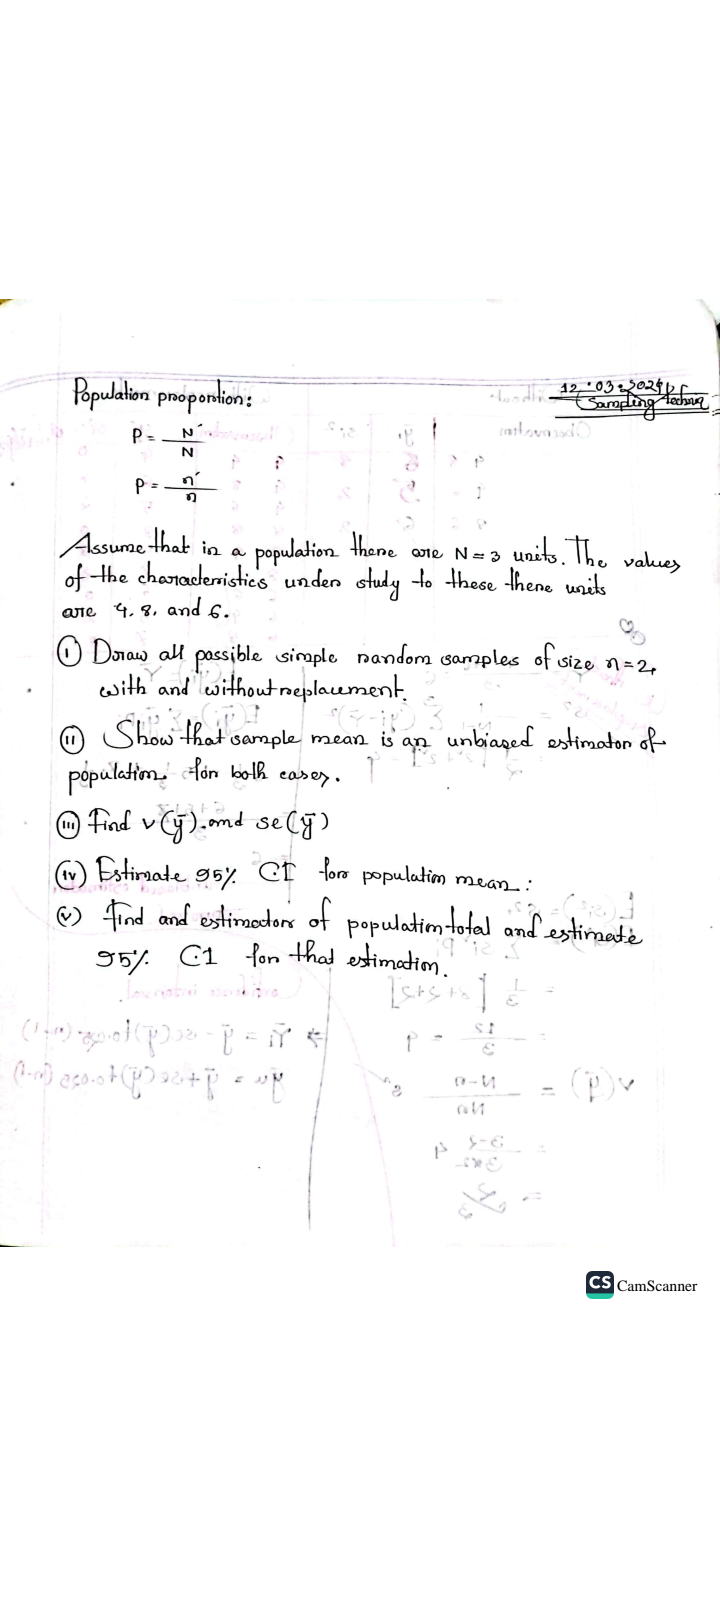 12.03.2024
Sampling
Population proportion:
P = N′/N
P = n′/n
Assume that in a population there are N=3 units. The values
of the characteristics under study to these there units
are 4, 8, and 6.
(i) Draw all possible simple random samples of size n=2,
with and without replacement.
(ii) Show that sample mean is an unbiased estimator of
population for both cases.
(iii) Find v(ȳ) and se(ȳ)
(iv) Estimate 95% CI for population mean:
(v) find and estimators of population total and estimate
95% CI for that estimation.
CS CamScanner